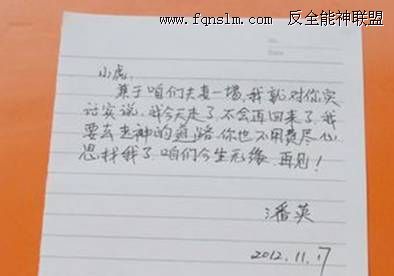 www.fqnslm.com 反全能神联盟
小虎:
基于咱们夫妻一场,我就对你实
话实说,我今天走了,不会再回来了,我
要去走神的道路,你也不用费尽心
思找我了,咱们今生无缘,再见!
潘英
2012.11.17